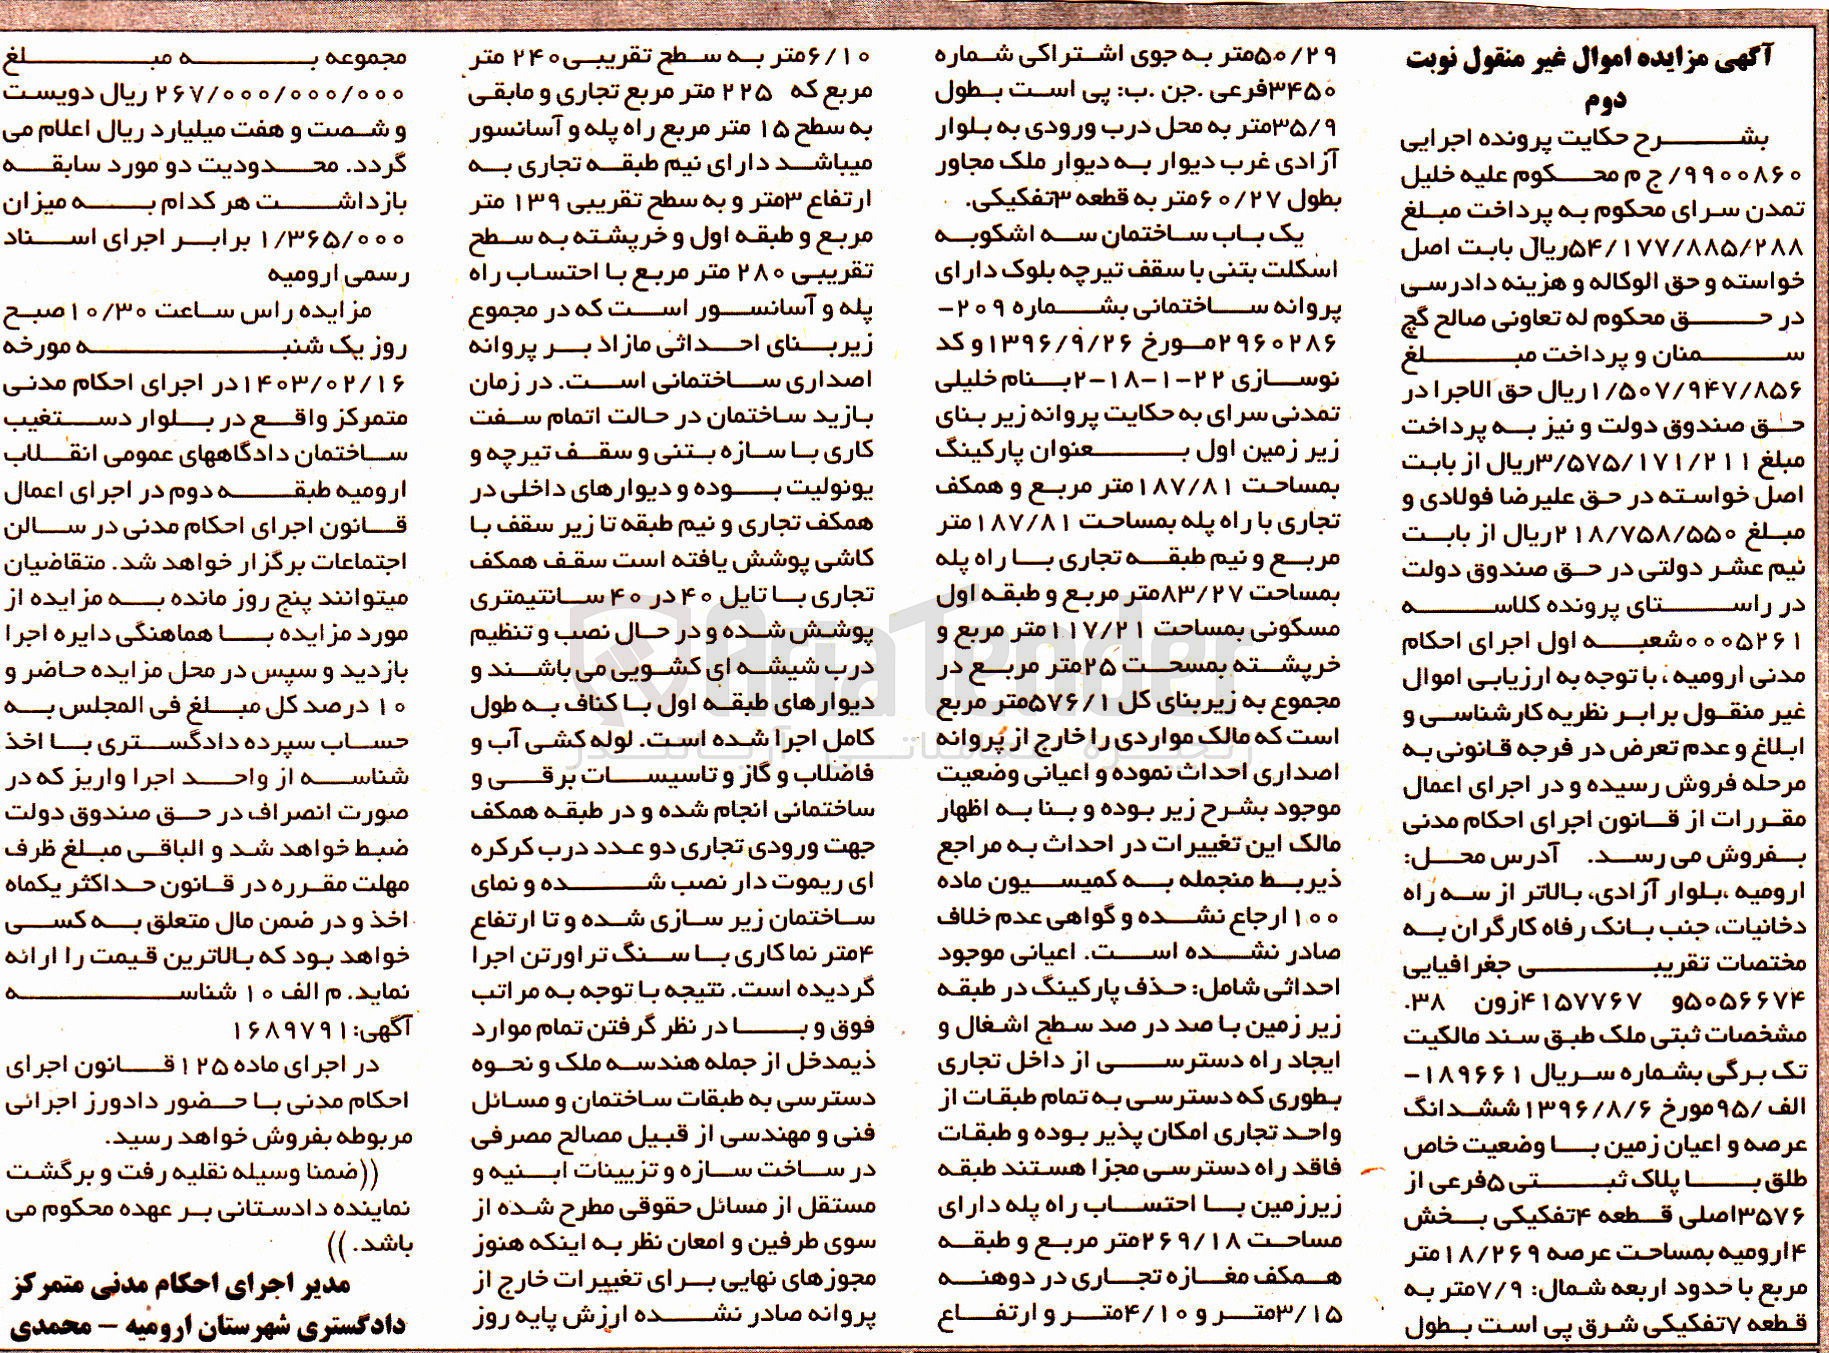 آگهی مزایده اموال غیر منقول نوبت
دوم
بشرح حکایت پرونده اجرایی
۹۹۰۰۸۶۰/ ج م محکوم علیه خلیل
تمدن سرای محکوم به پرداخت مبلغ
۵۴/۱۷۷/۸۸۵/۲۸۸ریال بابت اصل
خواسته و حق الوکاله و هزینه دادرسی
در حق محکوم له تعاونی صالح گچ
سمنان و پرداخت مبلغ
۱/۵۰۷/۹۴۷/۸۵۶ ریال حق الاجرا در
حق صندوق دولت و نیز به پرداخت
مبلغ ۳/۵۷۵/۱۷۱/۲۱۱ریال از بابت
اصل خواسته در حق علیرضا فولادی و
مبلغ ۲۱۸/۷۵۸/۵۵۰ریال از بابت
نیم عشر دولتی در حق صندوق دولت
در راستای پرونده کلاسه
۰۰۰۵۲۶۱شعبه اول اجرای احکام
مدنی ارومیه ، با توجه به ارزیابی اموال
غیر منقول برابر نظریه کارشناسی و
ابلاغ و عدم تعرض در فرجه قانونی به
مرحله فروش رسیده و در اجرای اعمال
مقررات از قانون اجرای احکام مدنی
بفروش می رسد. آدرس محل:
ارومیه ،بلوار آزادی، بالاتر از سه راه
دخانیات، جنب بانک رفاه کارگران به
مختصات تقریبی جغرافیایی
۵۰۵۶۶۷۴و ۴۱۵۷۷۶۷زون ۳۸.
مشخصات ثبتی ملک طبق سند مالکیت
تک برگی بشماره سریال ۱۸۹۶۶۱-
الف /۹۵مورخ ۱۳۹۶/۸/۶ششدانگ
عرصه و اعیان زمین با وضعیت خاص
طلق با پلاک ثبتی ۵فرعی از
۳۵۷۶اصلی قطعه ۴تفکیکی بخش
۴ارومیه بمساحت عرصه ۱۸/۲۶۹متر
مربع با حدود اربعه شمال: ۷/۹متر به
قطعه ۷تفکیکی شرق پی است بطول
۵۰/۲۹متر به جوی اشتراکی شماره
۳۴۵۰فرعی .جن .ب: پی است بطول
۳۵/۹متر به محل درب ورودی به بلوار
آزادی غرب دیوار به دیوار ملک مجاور
بطول ۶۰/۲۷متر به قطعه ۳تفکیکی.
یک باب ساختمان سه اشکوبه
اسکلت بتنی با سقف تیرچه بلوک دارای
پروانه ساختمانی بشماره ۲۰۹-
۲۹۶۰۲۸۶مورخ ۱۳۹۶/۹/۲۶و کد
نوسازی ۲۲-۱-۱۸-۲بنام خلیلی
تمدنی سرای به حکایت پروانه زیر بنای
زیر زمین اول بعنوان پارکینگ
بمساحت ۱۸۷/۸۱متر مربع و همکف
تجاری با راه پله بمساحت ۱۸۷/۸۱متر
مربع و نیم طبقه تجاری با راه پله
بمساحت ۸۳/۲۷متر مربع و طبقه اول
مسکونی بمساحت ۱۱۷/۲۱متر مربع و
خرپشته بمسحت ۲۵متر مربع در
مجموع به زیربنای کل ۵۷۶/۱متر مربع
است که مالک مواردی را خارج از پروانه
اصداری احداث نموده و اعیانی وضعیت
موجود بشرح زیر بوده و بنا به اظهار
مالک این تغییرات در احداث به مراجع
ذیربط منجمله به کمیسیون ماده
۱۰۰ارجاع نشده و گواهی عدم خلاف
صادر نشده است. اعیانی موجود
احداثی شامل: حذف پارکینگ در طبقه
زیر زمین با صد در صد سطح اشغال و
ایجاد راه دسترسی از داخل تجاری
بطوری که دسترسی به تمام طبقات از
واحد تجاری امکان پذیر بوده و طبقات
فاقد راه دسترسی مجزا هستند طبقه
زیرزمین با احتساب راه پله دارای
مساحت ۲۶۹/۱۸متر مربع و طبقه
همکف مغازه تجاری در دوهنه
۳/۱۵متر و ۴/۱۰متر و ارتفاع
۶/۱۰متر به سطح تقریبی۲۴۰ متر
مربع که ۲۲۵ متر مربع تجاری و مابقی
به سطح ۱۵ متر مربع راه پله و آسانسور
میباشد دارای نیم طبقه تجاری به
ارتفاع ۳متر و به سطح تقریبی ۱۳۹ متر
مربع و طبقه اول و خرپشته به سطح
تقریبی ۲۸۰ متر مربع با احتساب راه
پله و آسانسور است که در مجموع
زیربنای احداثی مازاد بر پروانه
اصداری ساختمانی است. در زمان
بازید ساختمان در حالت اتمام سفت
کاری با سازه بتنی و سقف تیرچه و
یونولیت بوده و دیوارهای داخلی در
همکف تجاری و نیم طبقه تا زیر سقف با
کاشی پوشش یافته است سقف همکف
تجاری با تایل ۴۰ در ۴۰ سانتیمتری
پوشش شده و در حال نصب و تنظیم
درب شیشه ای کشویی می باشند و
دیوارهای طبقه اول با کناف به طول
کامل اجرا شده است. لوله کشی آب و
فاضلاب و گاز و تاسیسات برقی و
ساختمانی انجام شده و در طبقه همکف
جهت ورودی تجاری دو عدد درب کرکره
ای ریموت دار نصب شده و نمای
ساختمان زیر سازی شده و تا ارتفاع
۴متر نما کاری با سنگ تراورتن اجرا
گردیده است. نتیجه با توجه به مراتب
فوق و با در نظر گرفتن تمام موارد
ذیمدخل از جمله هندسه ملک و نحوه
دسترسی به طبقات ساختمان و مسائل
فنی و مهندسی از قبیل مصالح مصرفی
در ساخت سازه و تزیینات ابنیه و
مستقل از مسائل حقوقی مطرح شده از
سوی طرفین و امعان نظر به اینکه هنوز
مجوزهای نهایی برای تغییرات خارج از
پروانه صادر نشده ارزش پایه روز
مجموعه به مبلغ
۲۶۷/۰۰۰/۰۰۰/۰۰۰ ریال دویست
و شصت و هفت میلیارد ریال اعلام می
گردد. محدودیت دو مورد سابقه
بازداشت هر کدام به میزان
۱/۳۶۵/۰۰۰ برابر اجرای اسناد
رسمی ارومیه
مزایده راس ساعت ۱۰/۳۰صبح
روز یک شنبه مورخه
۱۴۰۳/۰۲/۱۶در اجرای احکام مدنی
متمرکز واقع در بلوار دستغیب
ساختمان دادگاههای عمومی انقلاب
ارومیه طبقه دوم در اجرای اعمال
قانون اجرای احکام مدنی در سالن
اجتماعات برگزار خواهد شد. متقاضیان
میتوانند پنج روز مانده به مزایده از
مورد مزایده با هماهنگی دایره اجرا
بازدید و سپس در محل مزایده حاضر و
۱۰ درصد کل مبلغ فی المجلس به
حساب سپرده دادگستری با اخذ
شناسه از واحد اجرا واریز که در
صورت انصراف در حق صندوق دولت
ضبط خواهد شد و الباقی مبلغ ظرف
مهلت مقرره در قانون حداکثر یکماه
اخذ و در ضمن مال متعلق به کسی
خواهد بود که بالاترین قیمت را ارائه
نماید. م الف ۱۰ شناسه
آگهی: ۱۶۸۹۷۹۱
در اجرای ماده ۱۲۵قانون اجرای
احکام مدنی با حضور دادورز اجرائی
مربوطه بفروش خواهد رسید.
((ضمنا وسیله نقلیه رفت و برگشت
نماینده دادستانی بر عهده محکوم می
باشد. ))
مدیر اجرای احکام مدنی متمرکز
دادگستری شهرستان ارومیه – محمدی
AriaTender